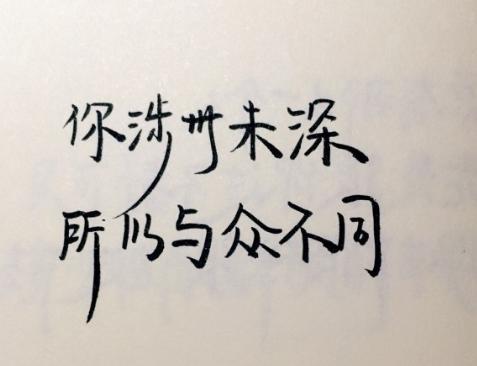 你涉世未深
所以与众不同